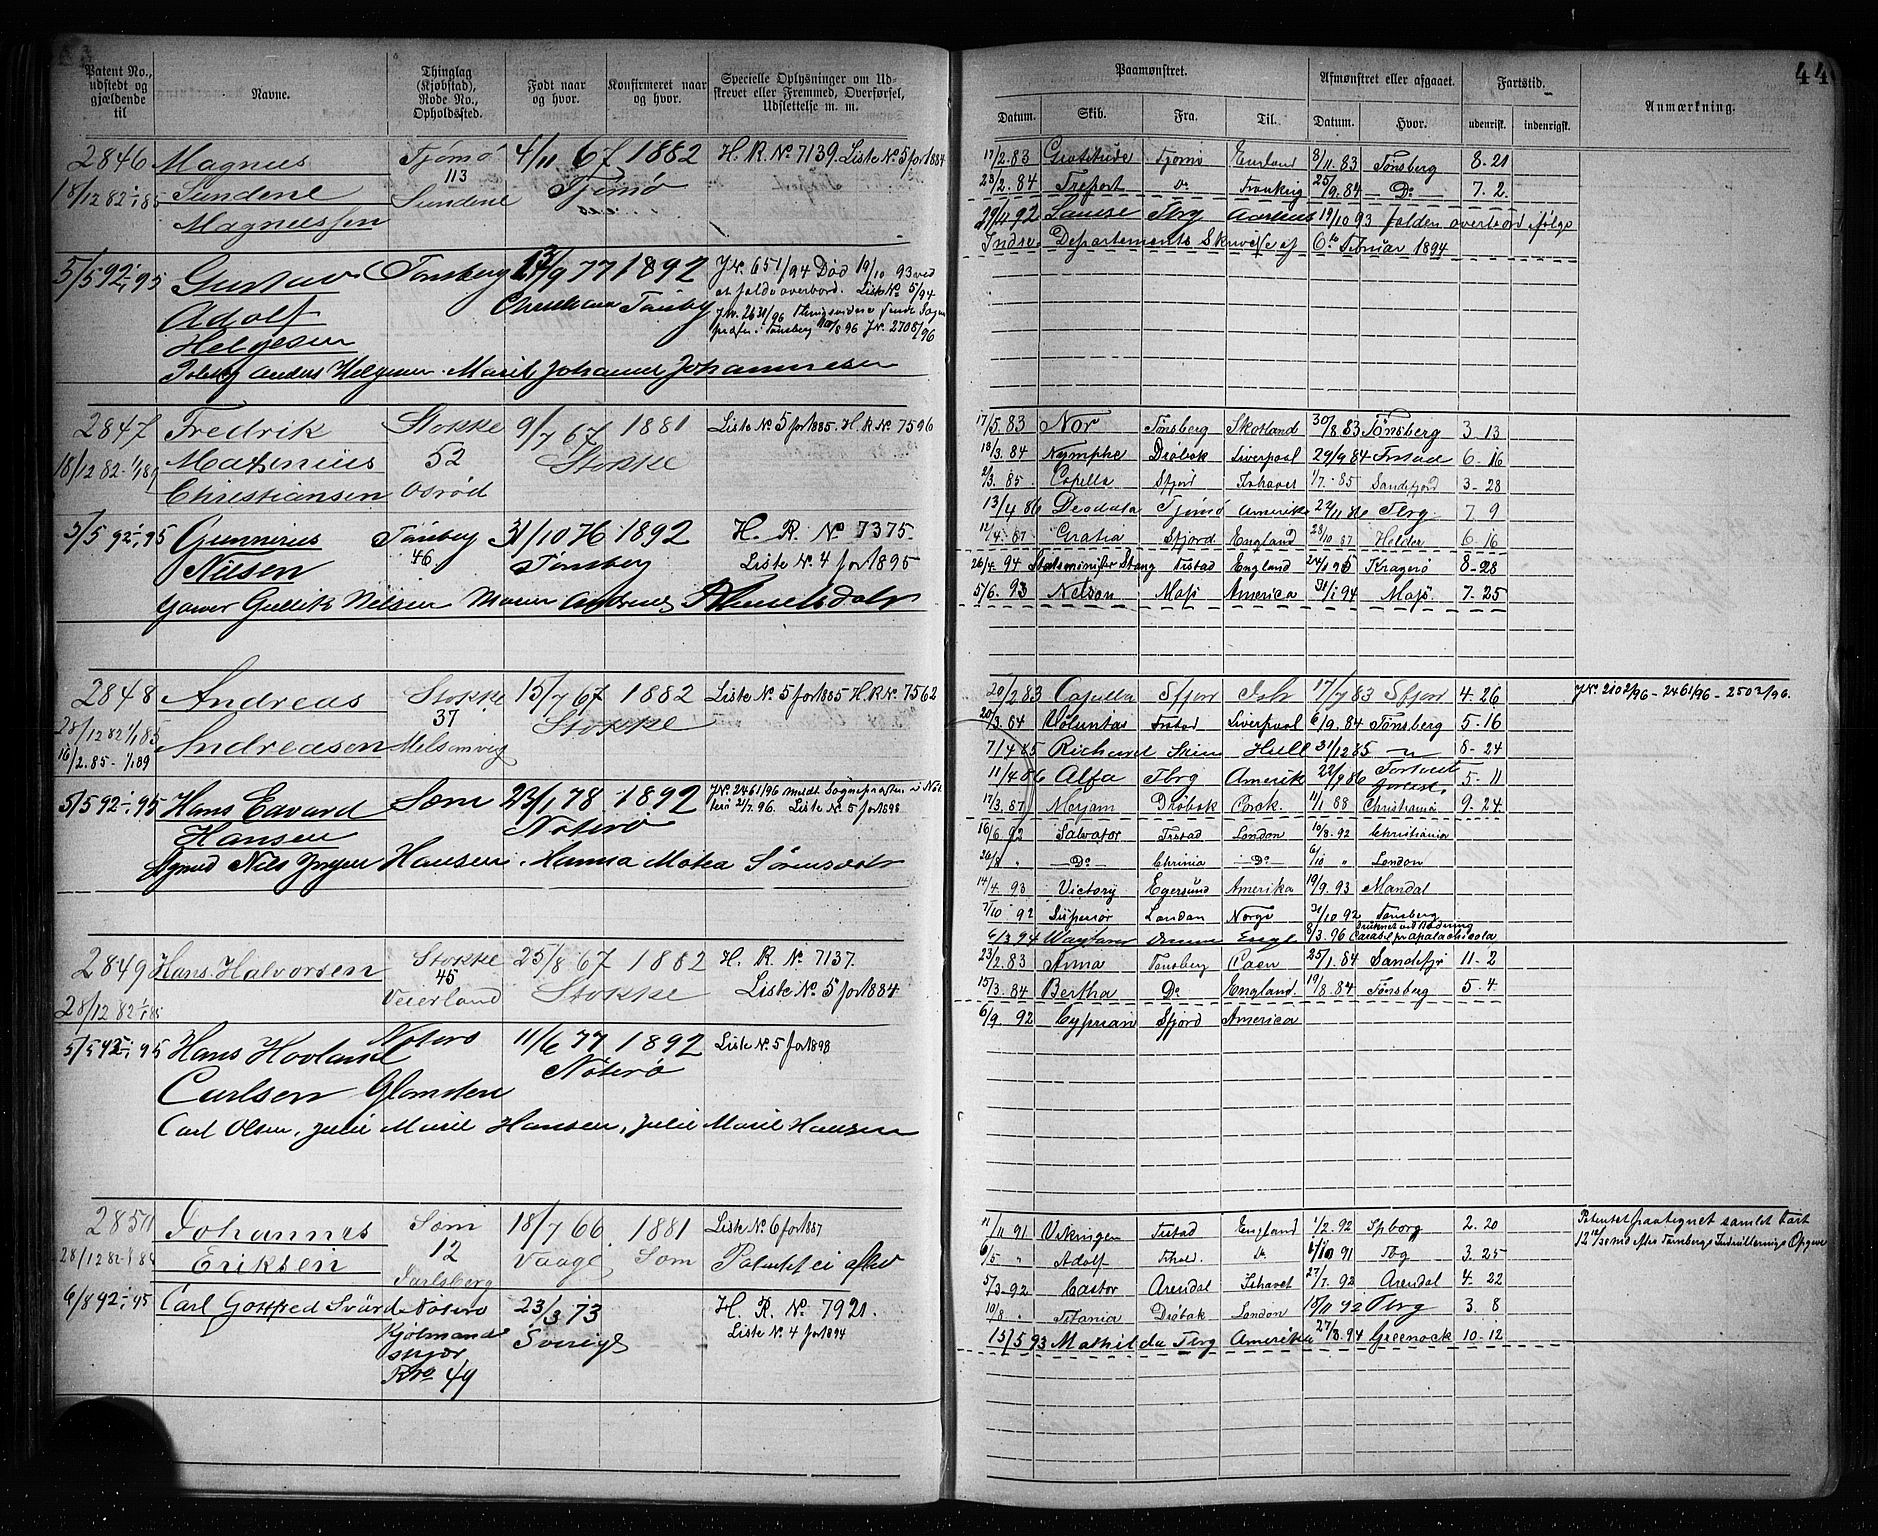 44
Patent No., udstedt og gjældende til
Navne.
Thinglag (Kjøbstad), Rode No., Opholdssted.
Født naar og hvor.
Konfirmeret naar og hvor.
Specielle Oplysninger om Udskrevet eller Fremmed, Overførsel, Udslettelse m. m.
2846 Magnus Tjømø 4/11 67 1882 H. R. No 7139. Liste No 5 for 1884
18/12 82 1/1 85 Sundene 113 Tjømø
Magnussen Sundene
5/5 92 1/1 95 Gustav Tønsberg 9 77 1892 J.No 651/94 Død 19/10 93 ved
Adolf at falde overbord. Liste No 5/94
Helgesen
Anders Helgesen. Marie Johanne Johannesen
2847 Fredrik Stokke 9/7 67 1881 Liste No 5 for 1885. H. R. No 7596
18/12 82 Mathinius 52 Stokke
Christiansen
5/5 92 1/1 95 Gunnerius Tønsberg 31/10 76 1892 H. R. No 7375.
Nilsen 46 Tønsberg Liste No 4 for 1895
Gullik Nilsen Maren
2848 Andreas Stokke 15/7 67 1882 Liste No 5 for 1885 H.R.No 7562
28/12 82 1/1 85 37 Stokke
16/2.85 - 1/1 89 Andreasen Melsomvig
5/5 92 1/1 95 Hans Edvard Sæm 23/1 78 1892 J.No 2461/96 Sognepræsten i
Hansen Nøterø 96 Liste No 5 for 1898
Nils Hansen. Hanna Mathea
2849 Hans Halvorsen Stokke 25/8 67 1882 H. R. No 7137.
45 Stokke Liste No 5 for 1884
28/12 82 1/1 85 Veierland
5/5 92 1/1 95 Hans Hovland Nøterø 11/6 77 1892 Liste No 5 for 1898
Nøterø
Carlsen Glomsten
Carl Olsen, Julie Marie Hansen, Julie Marie Hansen
2850 Johannes Sæm 18/7 66 1881 Liste No 6 for 1887
28/12 82 1/1 85 Eriksen 12 Vaage Sæm Patentet ei
Jarlsberg
6/8 92 1/1 95 Carl Gottfred Svärd Nøterø 23/3 73 H. R. No 7921.
Kjølmand Sverige Liste No 4 for 1894
skjær
Rno 49
Paamønstret.
Afmønstret eller afgaaet.
Fartstid.
Anmærkning.
Datum. Skib. Fra. Til. Datum. Hvor. udenrigsk. indenrigsk.
2.83 Gratitude Tjømø England 8/11 83 Tønsberg 8. 21
23/2.84 Treport Do Frankrig 25/9.84 Do 7. 2
29/11 92 Louise Tbrg Aarhus 19/10 93 falden overbord ifølge
Indre Departements Skrivelse af 6te Februar 1894
17/5.83 Nor Tønsberg Skotland 30/8.83 Tønsberg 3 13
18/3.84 Nymphe Drøbak Liverpool 29/9 84 Frstad 6. 16
2/3. 85 Capella Sfjord Ishavet 1/7. 85 Sandefjord 3 - 28
13/4 86 Deodata Tjømø Amerika 11 86 Tbrg 7 9
12/4.87 Gratia Sfjord England 23/10 87 Helder 6. 16
26/4 94 Statsminister Stang Frstad England Kragerø 8 - 28
5/6. 93 Nelson Moss America 31/1 94 Moss 7. 25
20/2 83 Capella Sfjor Ish 17/7 83 Sfjor 4. 26 J.No 2102/96 - 2461/96 - 2502/96.
20/3.84 Voluntas Frstad Liverpool 6/9. 84 Tønsberg 5 - 16
7/4 85 Richard Skien Hull 31/12 85 " 8 - 24
11/4.86 Alfa Tbrg Amerik 22/9 86 5. 11
17/3. 87 Merjam Drøbak Cork. 11/1 88 Christiania 9. 24
16/6 92 Salvator Frstad London 10/8. 92 Christiania
26/8 " Do Chrinia Do 6/10 " London
14/4. 93 Victory Egersund Amerika 19/9. 93 Mandal
7/10 92 Superior London Norge 31/10 92 Tønsberg
6/3 94 Engl 8/3. 96
23/2. 83 Anna Tønsberg Caen 25/1.84 Sandefjr 11 - 2
15/3. 84 Bertha Do England. 19/8. 84 Tønsberg 5. 4
6/9. 92 Cyprian Sfjord America
11/11 91 Vikingen Frstad England 1/2. 92 Spborg 2. 20 Patentet paategnet samlet Fart
6/5 " Adolf Do 91 Tbg 3. 25
5/3 - 92 Castor Arendal Ishavet 27/7. 92 Arendal 4. 22
10/8 " Titania Drøbak London 18/11 92 Tbrg 3. 8
15/5 93 Mathilda Tbrg Amerika 27/3. 94 Greenock 10 - 12